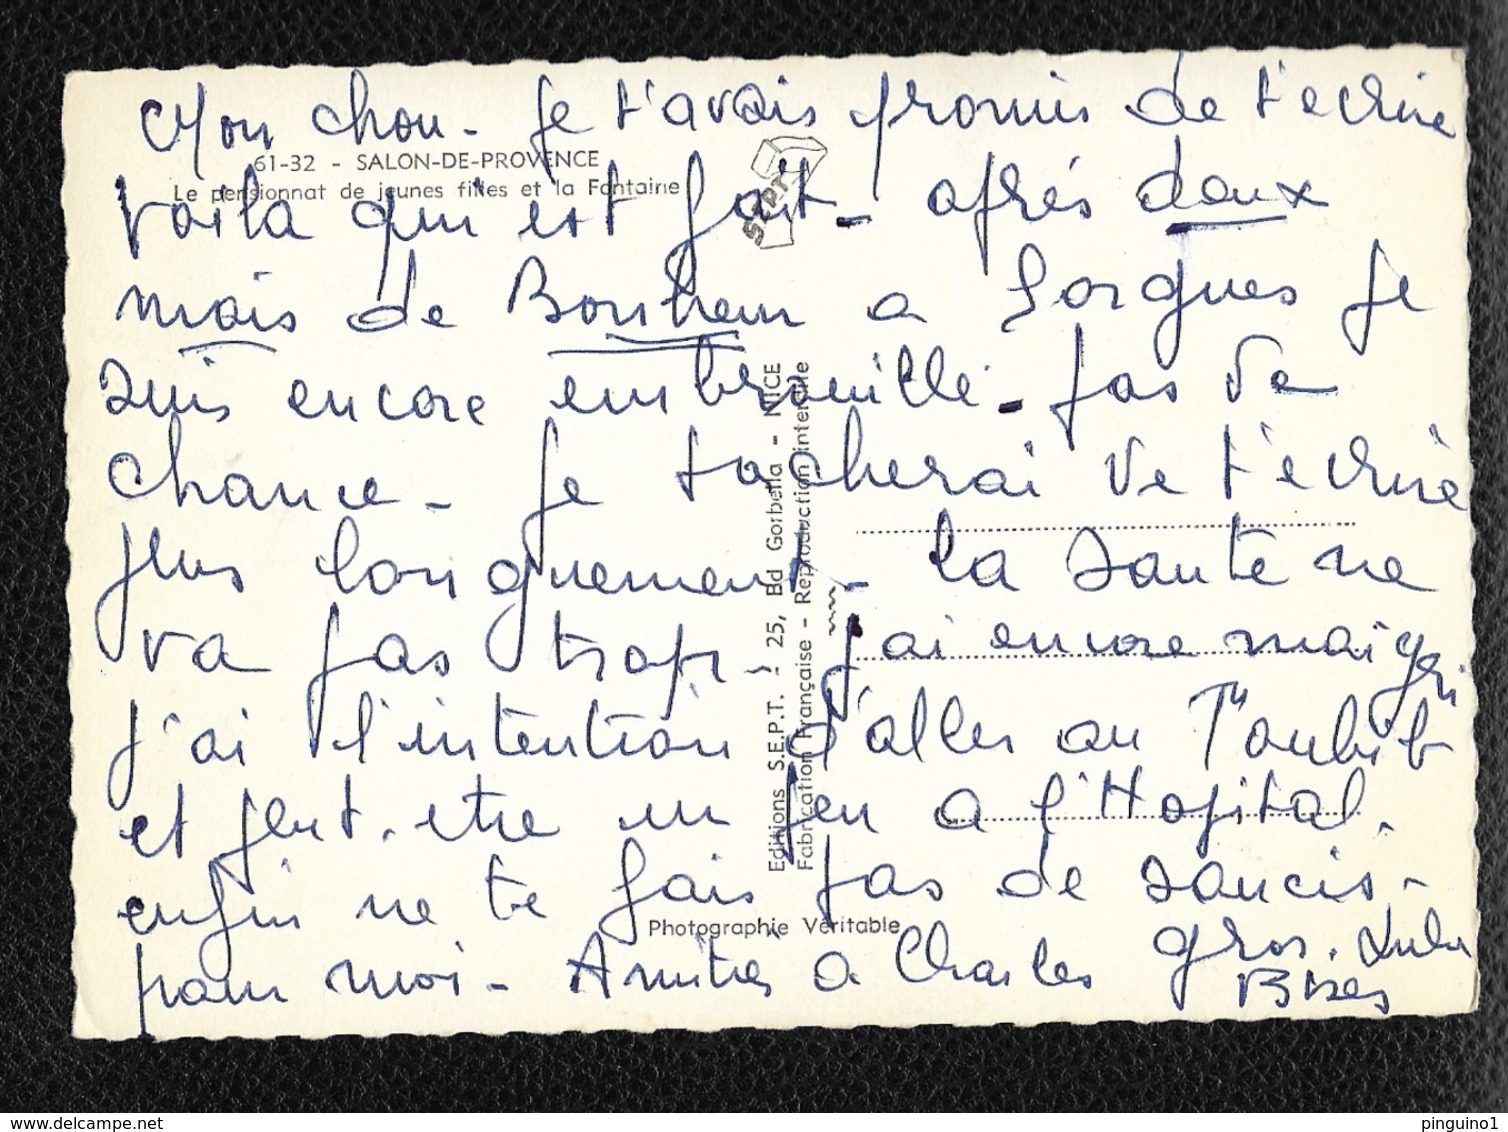 Mon chou - Je t'avais promis de t'ecrire
61-32 - SALON-DE-PROVENCE
Le pensionnat de jeunes filles et la Fontaine
SEPT
voila qui est fait - après deux
mois de Bonheur a Sorgues je
suis encore embrouillé - pas de
chance - Je tacherai de t'ecrire
plus longuement - la santé ne
va pas trop - j'ai encore maigri
j'ai l'intention d'aller au Toubib
et peut-etre un peu a l'Hopital.
enfin ne te fais pas de soucis -
pour moi - Amitiés a Charles gros. Lulu
Bises
Editions S.E.P.T. - 25, Bd Gorbella - NICE
Fabrication Française - Reproduction interdite
Photographie Véritable
delcampe.net
pinguino1